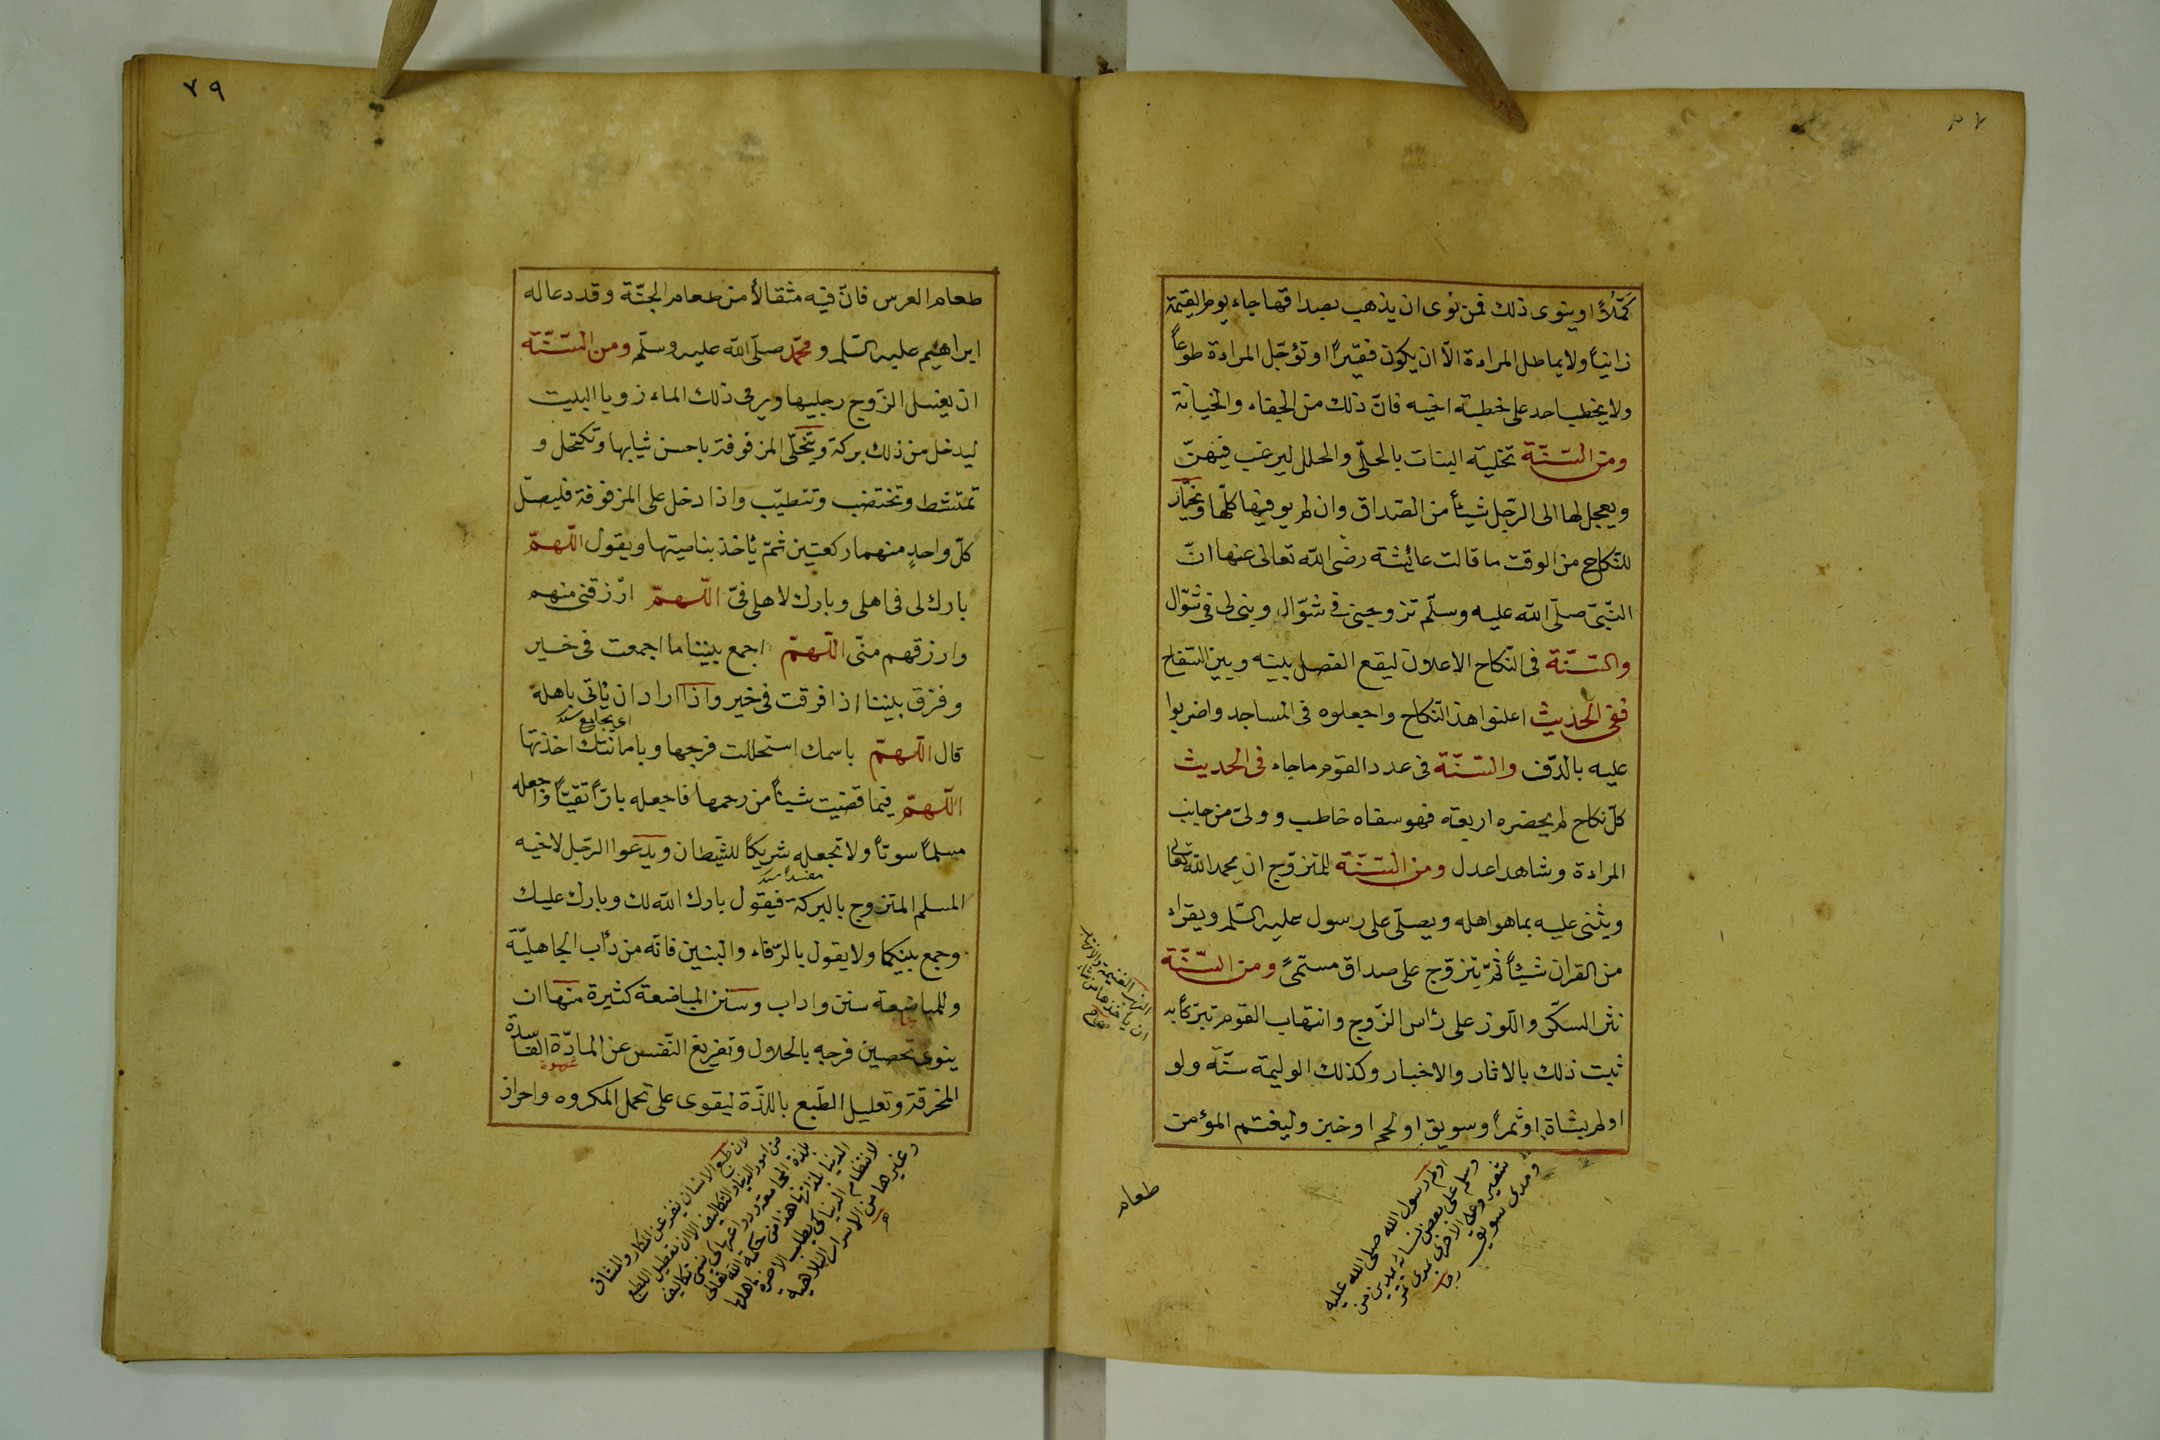 كَمَلاً او ينوى ذلك فمن نوى ان يذهب بصداقها جاء يوم القيمة
زانياً ولا يماطل المراءة الّا ان يكون فقيراً او تؤجّل المراءة طوعاً
ولا يخطب احد على خطبة اخيه فانّ ذلك من الجفاء والخيانة
ومن السّنّة تحلية البنات بالحلّى والحلل ليرغب فيهنّ
ويعجل لها الى الرّجل شيئاً من الصّداق وان لم يوفيها كلّها ويختار
للنّكاح من الوقت ما قالت عائشة رضى الله تعالى عنها انّ
النّبىّ صلّى الله عليه وسلّم تزوجنى فى شوّال وبنى لى فى شوّال
والسّنّة فى النّكاح الاعلان ليقع الفصل بينه وبين السّفاح
ففى الحديث اعلنوا هذا النّكاح واجعلوه فى المساجد واضربوا
عليه بالدّف والسّنّة فى عدد القوم ما جاء فى الحديث
كلّ نكاح لم يحضره اربعة فهو سفاه خاطب وولىّ من جانب
المراءة وشاهدا عدل ومن السّنّة للمتزوّج ان يحمد الله تعالى
ويثنى عليه بما هو اهله ويصلّى على رسول عليه السّلم ويقراء
من القران شيئاً ثمّ يتزوّج على صداق مسمّىً ومن السّنّة
نثر السكّر واللّوز على رأس الزّوج وانتهاب القوم تبرّكاً به
ثبت ذلك بالاثار والاخبار وكذلك الوليمة سنّة ولو
اولم بشاة او تمراً وسويق او لحم او خبز وليغتنم المؤمن
اولم رسول الله صلى الله عليه
وسلم على بعض نسائه بمدين من
شعير وعلى الاخرى بمدى تمر
ومدى سويق
طعام
٧٩
طعام العرس فانّ فيه مثقالاً من طعام الجنّة وقد دعا له
ابراهيم عليه السّلم ومحمّد صلّى الله عليه وسلّم ومن السّنّة
ان يغسل الزّوج رجليها ويرمى ذلك الماء زوايا البيت
ليدخل من ذلك بركة ويتحلّى المزفوفة باحسن ثيابها وتكتحل و
تمتشط وتختضب وتتطيّب واذا دخل على المزفوفة فليصلّ
كلّ واحدٍ منهما ركعتين ثمّ يأخذ بناصيتها ويقول اللّهمّ
بارك لى فى اهلى وبارك لاهلى فىّ اللّهمّ ارزقنى منهم
وارزقهم منّى اللّهمّ اجمع بيننا ما اجمعت فى خير
وفرّق بيننا اذا فرقت فى خير واذا اراد ان يأتى باهله
اى يجامع
قال اللّهمّ باسمك استحللت فرجها وبامانتك اخذتها
اللّهمّ فيما قضيت شيئاً من رحمها فاجعله بارّاً تقيّاً واجعله
مسلماً سويّاً ولا تجعله شريكاً للشّيطان ويدعوا الرّجل لاخيه
المسلم المتزوج بالبركة فيقول بارك الله لك وبارك عليك
وجمع بينكما ولا يقول بالرّفاء والبنين فانّه من دأب الجاهليّة
وللمباضعة سنن واداب وسنن المباضعة كثيرة منها ان
ينوى تحصين فرجه بالحلال وتفريغ النّفس عن المادّة الفاسدة
شهوة
المخرقة وتعليل الطّبع باللذّة ليقوى على تحمل المكروه واحراز
لان طبع الانسان ينفر عن المكاره والمشاق
من امور الدنيا والتكاليف الا ان تعطيل الطبع